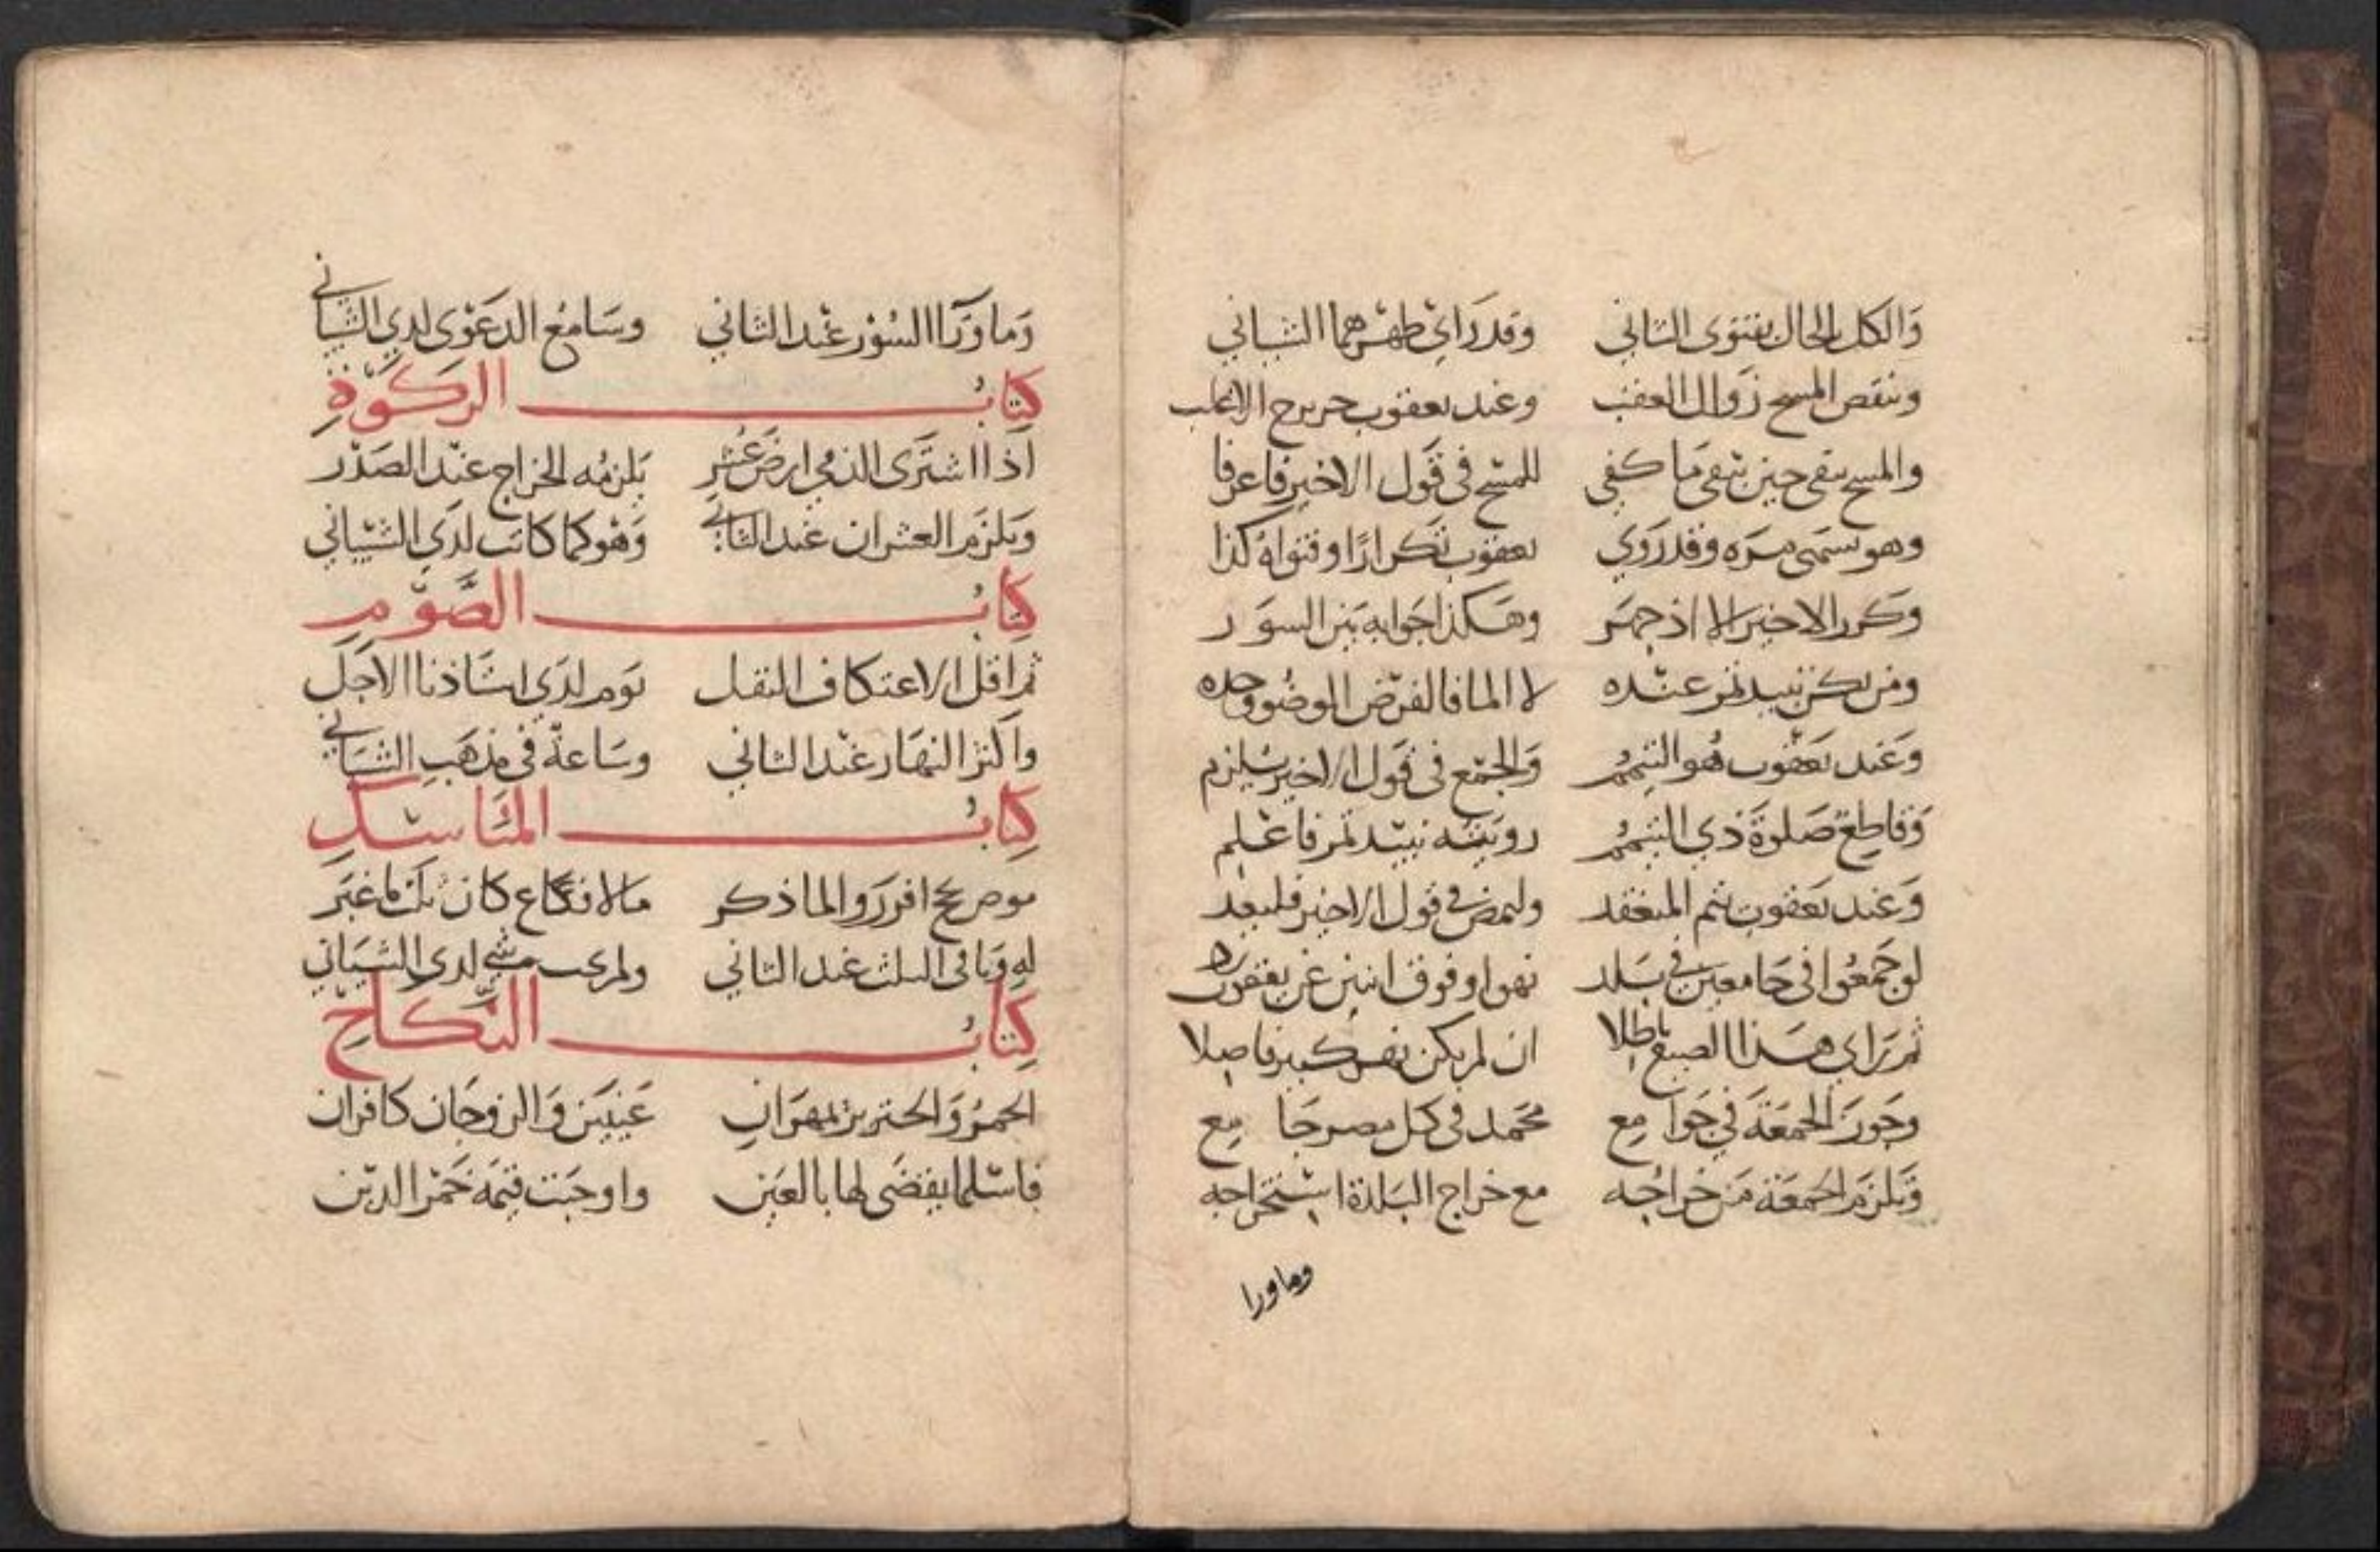 والكل بالحال بفتوى الثاني وقد راي طهرهما الشيباني
ونقض المسح زوال العقب وعند يعقوب خروج الاغلب
والمسح يبقى حين يبقى ما كفي للمسح في قول الاخير فاعرفا
وهو يسمى مرة وقد روي يعقوب تكرارا وفتواه كذا
وكرر الاخير الا اذ جهر وهكذا جوابه بين السور
ومن يكن نبيذ تمر عنده لا الما فالفرض الوضوء وحده
وعند يعقوب هو التيمم والجمع في قول الاخير يلزم
وقاطع صلوة ذي التيمم رويته نبيذ تمر فاعلم
وعند يعقوب يتم المنعقد وليمض في قول الاخير فليعد
لو جمعوا في جامعين في بلد نهر او فوق اثنين عن يعقوب
ثم راي هذا الصنيع باطلا ان لم يكن نهر كبير فاصلا
وجوز الجمعة في جوامع محمد في كل مصر جامع
وتلزم الجمعة من خراجه مع خراج البلدة استخراجه
وما ورا
وما ورآ السور عند الثاني وسامع الدعوى لدي الشيباني
كتاب الزكوة
اذا اشترى الذمي ارض عشر يلزمه الخراج عند الصدر
ويلزم العشران عند الثاني وهو كما كانت لدي الشيباني
كتاب الصوم
ثم اقل الاعتكاف النفل يوم لدي استاذنا الاجل
واكثر النهار عند الثاني وساعة في مذهب الشيباني
كتاب المناسك
موص بحج افرزوا لما ذكر مالا فضاع كان ثلث ما غبر
له وباقي الثلث عند الثاني ولم يجب شي لدى الشيباني
كتاب النكاح
الخمر والخنزير يمهران عينين والزوجان كافران
فاسلما يقضى لها بالعين واوجبت قيمة خمر الدين